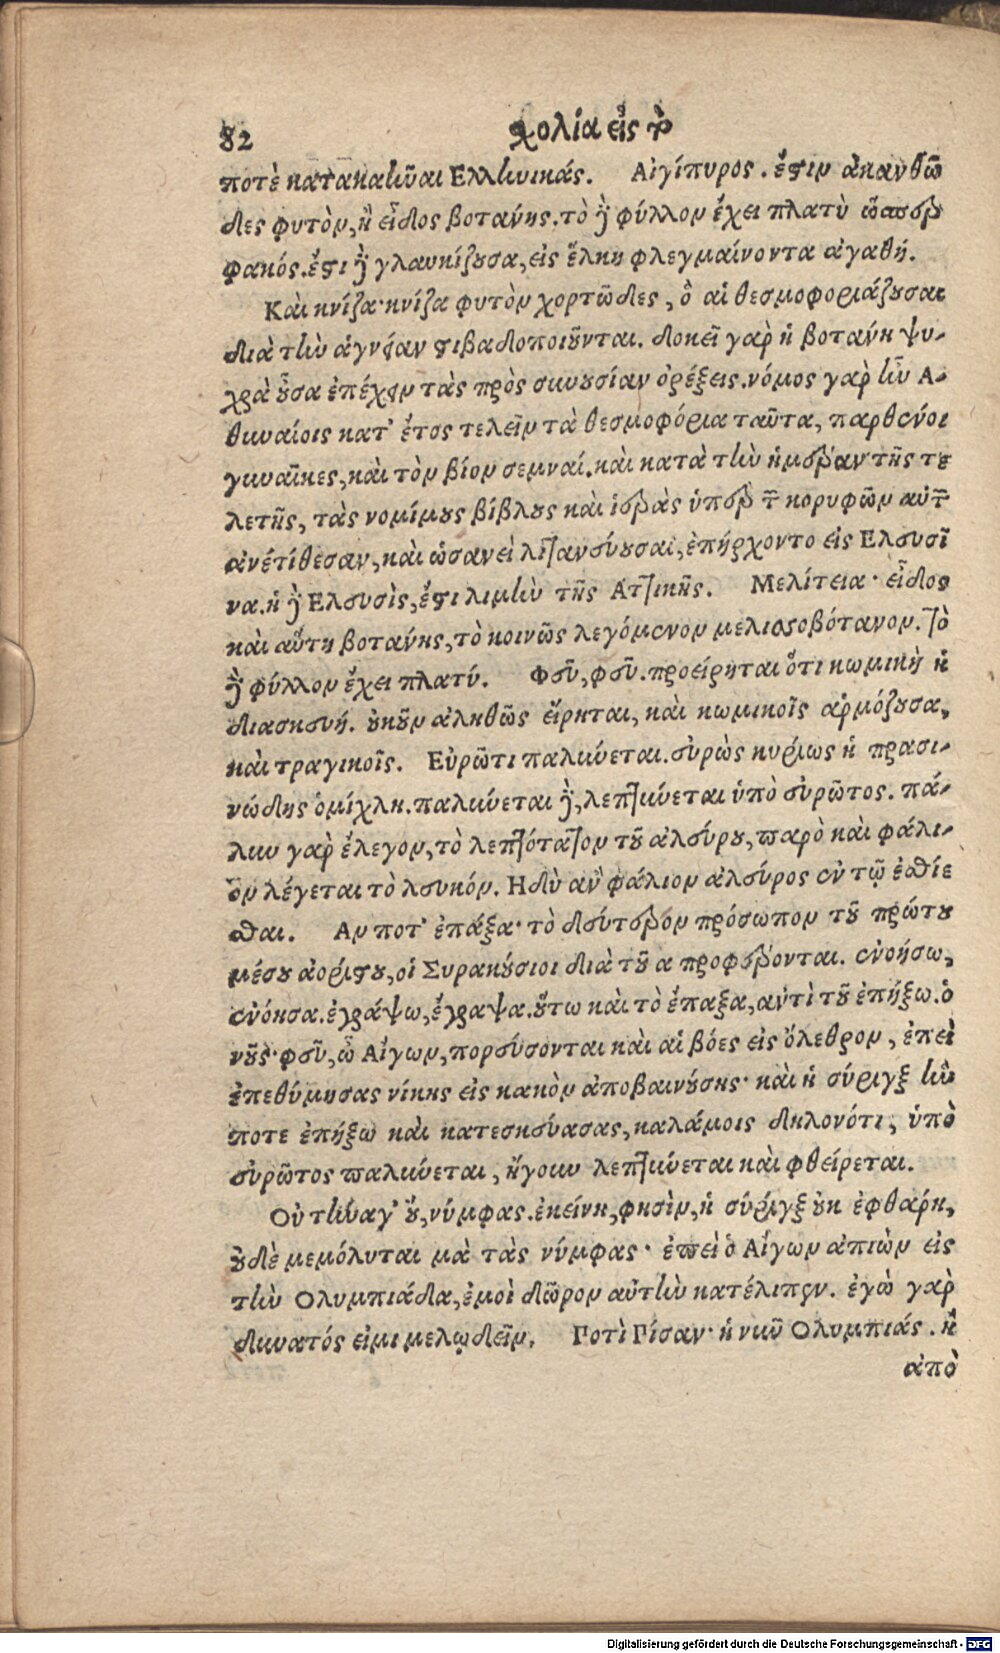 82 χολία εἰς τὸ
ποτὲ κατακαῆναι Ελληνικάς. Αἰγίπυρος. ἔστιν ἀκανθῶ
δες φυτὸν, ἢ εἶδος βοτάνης. τὸ δὲ φύλλον ἔχει πλατὺ ὥσπερ
φακός. ἔστι δὲ γλαυκίζουσα, εἰς ἕλκη φλεγμαίνοντα ἀγαθή.
Καὶ κνίζα· κνίζα φυτὸν χορτῶδες, ὃ αἱ θεσμοφοριάζουσαι
διὰ τὴν ἁγνείαν στιβαδοποιοῦνται. δοκεῖ γὰρ ἡ βοτάνη ψυ-
χρὰ οὖσα ἐπέχειν τὰς πρὸς συνουσίαν ὀρέξεις. νόμος γὰρ ἦν Α-
θηναίοις κατ' ἔτος τελεῖν τὰ θεσμοφόρια ταῦτα, παρθένοι
γυναῖκες, καὶ τὸν βίον σεμναί. καὶ κατὰ τὴν ἡμέραν τῆς τε
λετῆς, τὰς νομίμους βίβλους καὶ ἱερὰς ὑπὲρ τῶν κορυφῶν αὐτῶν
ἀνέτίθεσαν, καὶ ὡσανεὶ λιτανεύουσαι, ἐπήρχοντο εἰς Ελευσῖ
να. ἡ δὲ Ελευσὶς, ἔστι λιμὴν τῆς Ατικῆς. Μελίτεια· εἶδος
καὶ αὕτη βοτάνης, τὸ κοινῶς λεγόμενον μελισσοβότανον. Τὸ
δὲ φύλλον ἔχει πλατύ. Φεῦ, φεῦ. προείρηται ὅτι κωμικὴ ἡ
διασκευή. οὐκοῦν ἀληθῶς εἴρηται, καὶ κωμικοῖς ἁρμόζουσα,
καὶ τραγικοῖς. Εὐρῶτι παλύνεται. εὐρὼς κυρίως ἡ πρασι-
νώδης ὁμίχλη. παλύνεται δὲ, λεπτύνεται ὑπὸ εὐρῶτος. πά-
λην γὰρ ἔλεγον, τὸ λεπτότατον τοῦ ἀλεύρου, παρὸ καὶ φάλι-
ον λέγεται τὸ λευκόν. Ηδὺ ἂν φάλιον ἀλεύρος ἐν τῷ ἐσθίε
σθαι. Αν ποτ' ἐπάξα· τὸ δεύτερον πρόσωπον τοῦ πρώτου
μέσου ἀορίστου, οἱ Συρακούσιοι διὰ τοῦ α προφέρονται. ἐνοήσω,
ἐνόησα. ἐγράψω, ἔγραψα. οὕτω καὶ τὸ ἔπαξα, αντὶ τοῦ ἐπήξω. ὁ
νοῦς· φεῦ, ὦ Αἴγων, πορεύσονται καὶ αἱ βόες εἰς ὄλεθρον, ἐπεὶ
ἐπεθύμησας νίκης εἰς κακὸν ἀποβαινούσης· καὶ ἡ σύριγξ ἣν
ποτε ἐπήξω καὶ κατεσκεύασας, καλάμοις δηλονότι, ὑπὸ
εὐρῶτος παλύνεται, ἤγουν λεπτύνεται καὶ φθείρεται.
Οὐ τήναγ' οὔ, νύμφας. ἐκείνη, φησὶν, ἡ σύριγξ οὐκ ἐφθάρη,
οὐδὲ μεμόλυται μὰ τὰς νύμφας· ἐπεὶ ὁ Αἴγων ἀπιὼν εἰς
τὴν Ολυμπιάδα, ἐμοὶ δῶρον αὐτὴν κατέλιπεν. ἐγὼ γὰρ
δυνατός εἰμι μελῳδεῖν. Γοτὶ Γίσαν· ἡ νῦν Ολυμπιάς. ἢ
ἀπὸ
Digitalisierung gefördert durch die Deutsche Forschungsgemeinschaft - DFG